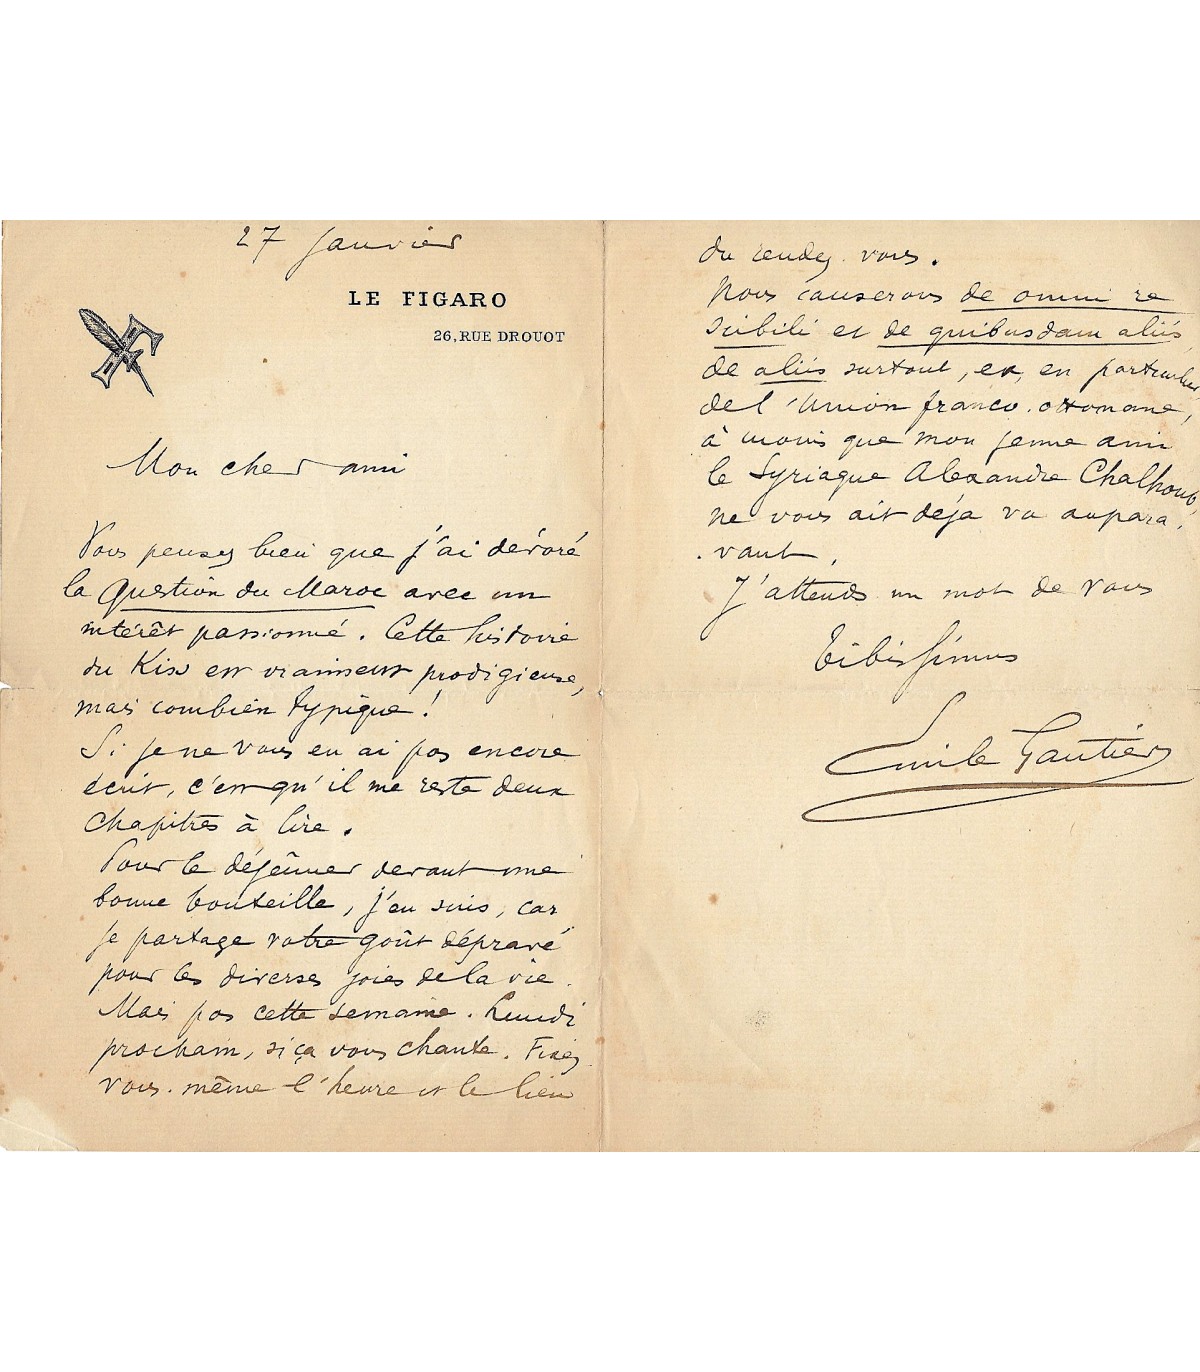 27 Janvier
LE FIGARO
26, RUE DROUOT
Mon cher ami
Vous pensez bien que j'ai dévoré
la Question du Maroc avec un
intérêt passionné. Cette histoire
du Kiss est vraiment prodigieuse,
mais combien typique !
Si je ne vous en ai pas encore
écrit, c'est qu'il me reste deux
chapitres à lire.
Pour le déjeûner devant une
bonne bouteille, j'en suis, car
je partage votre goût dépravé
pour les diverses joies de la vie.
Mais pas cette semaine. Lundi
prochain, si ça vous chante. Fixez
vous-même l'heure et le lieu
du rendez-vous.
Nous causerons de omni re
scibili et de quibusdam aliis,
de aliis surtout, et, en particulier
de l'Union franco-ottomane,
à moins que mon jeune ami
le Syriaque Alexandre Chalhoub
ne vous ait déjà vu aupara-
-vant.
J'attends un mot de vous
Tibissimus
Emile Gautier